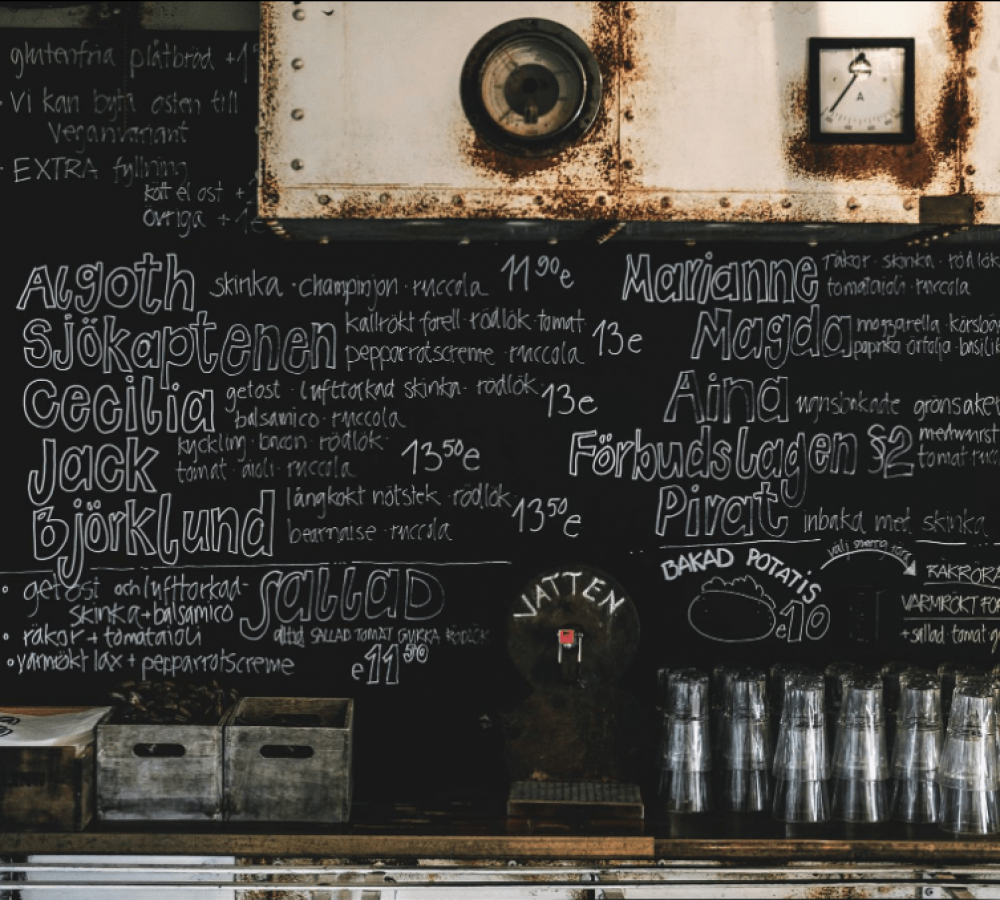 glutenfria plåtbröd +1
· Vi kan byta osten till
Veganvariant
· EXTRA fyllning
kött el ost +
övriga +1e
Algoth skinka · champinjon · ruccola 11⁹⁰e
Sjökaptenen kallrökt forell · rödlök · tomat
pepparrotscreme · ruccola 13e
Cecilia getost · lufttorkad skinka · rödlök
balsamico · ruccola 13e
Jack kyckling · bacon · rödlök
tomat · aioli · ruccola 13⁵⁰e
Björklund långkokt nötstek · rödlök
bearnaise · ruccola 13⁵⁰e
Marianne räkor · skinka · rödlök
tomataioli · ruccola
Magda mozzarella · körsbä
paprika örtolja · basilik
Aina ugnsbakade grönsaker
Förbudslagen §2 medwurst
tomat · rucc
Pirat inbakad med skinka
· getost och lufttorkad-
skinka + balsamico
· räkor + tomataioli
· varmrökt lax + pepparrotscreme
Sallad
alltid SALLAD TOMAT GURKA RÖDLÖK
e11⁹⁰
VATTEN
BAKAD POTATIS
e10
välj
RÄKRÖRA
VARMRÖKT
+ sallad · tomat · g
A